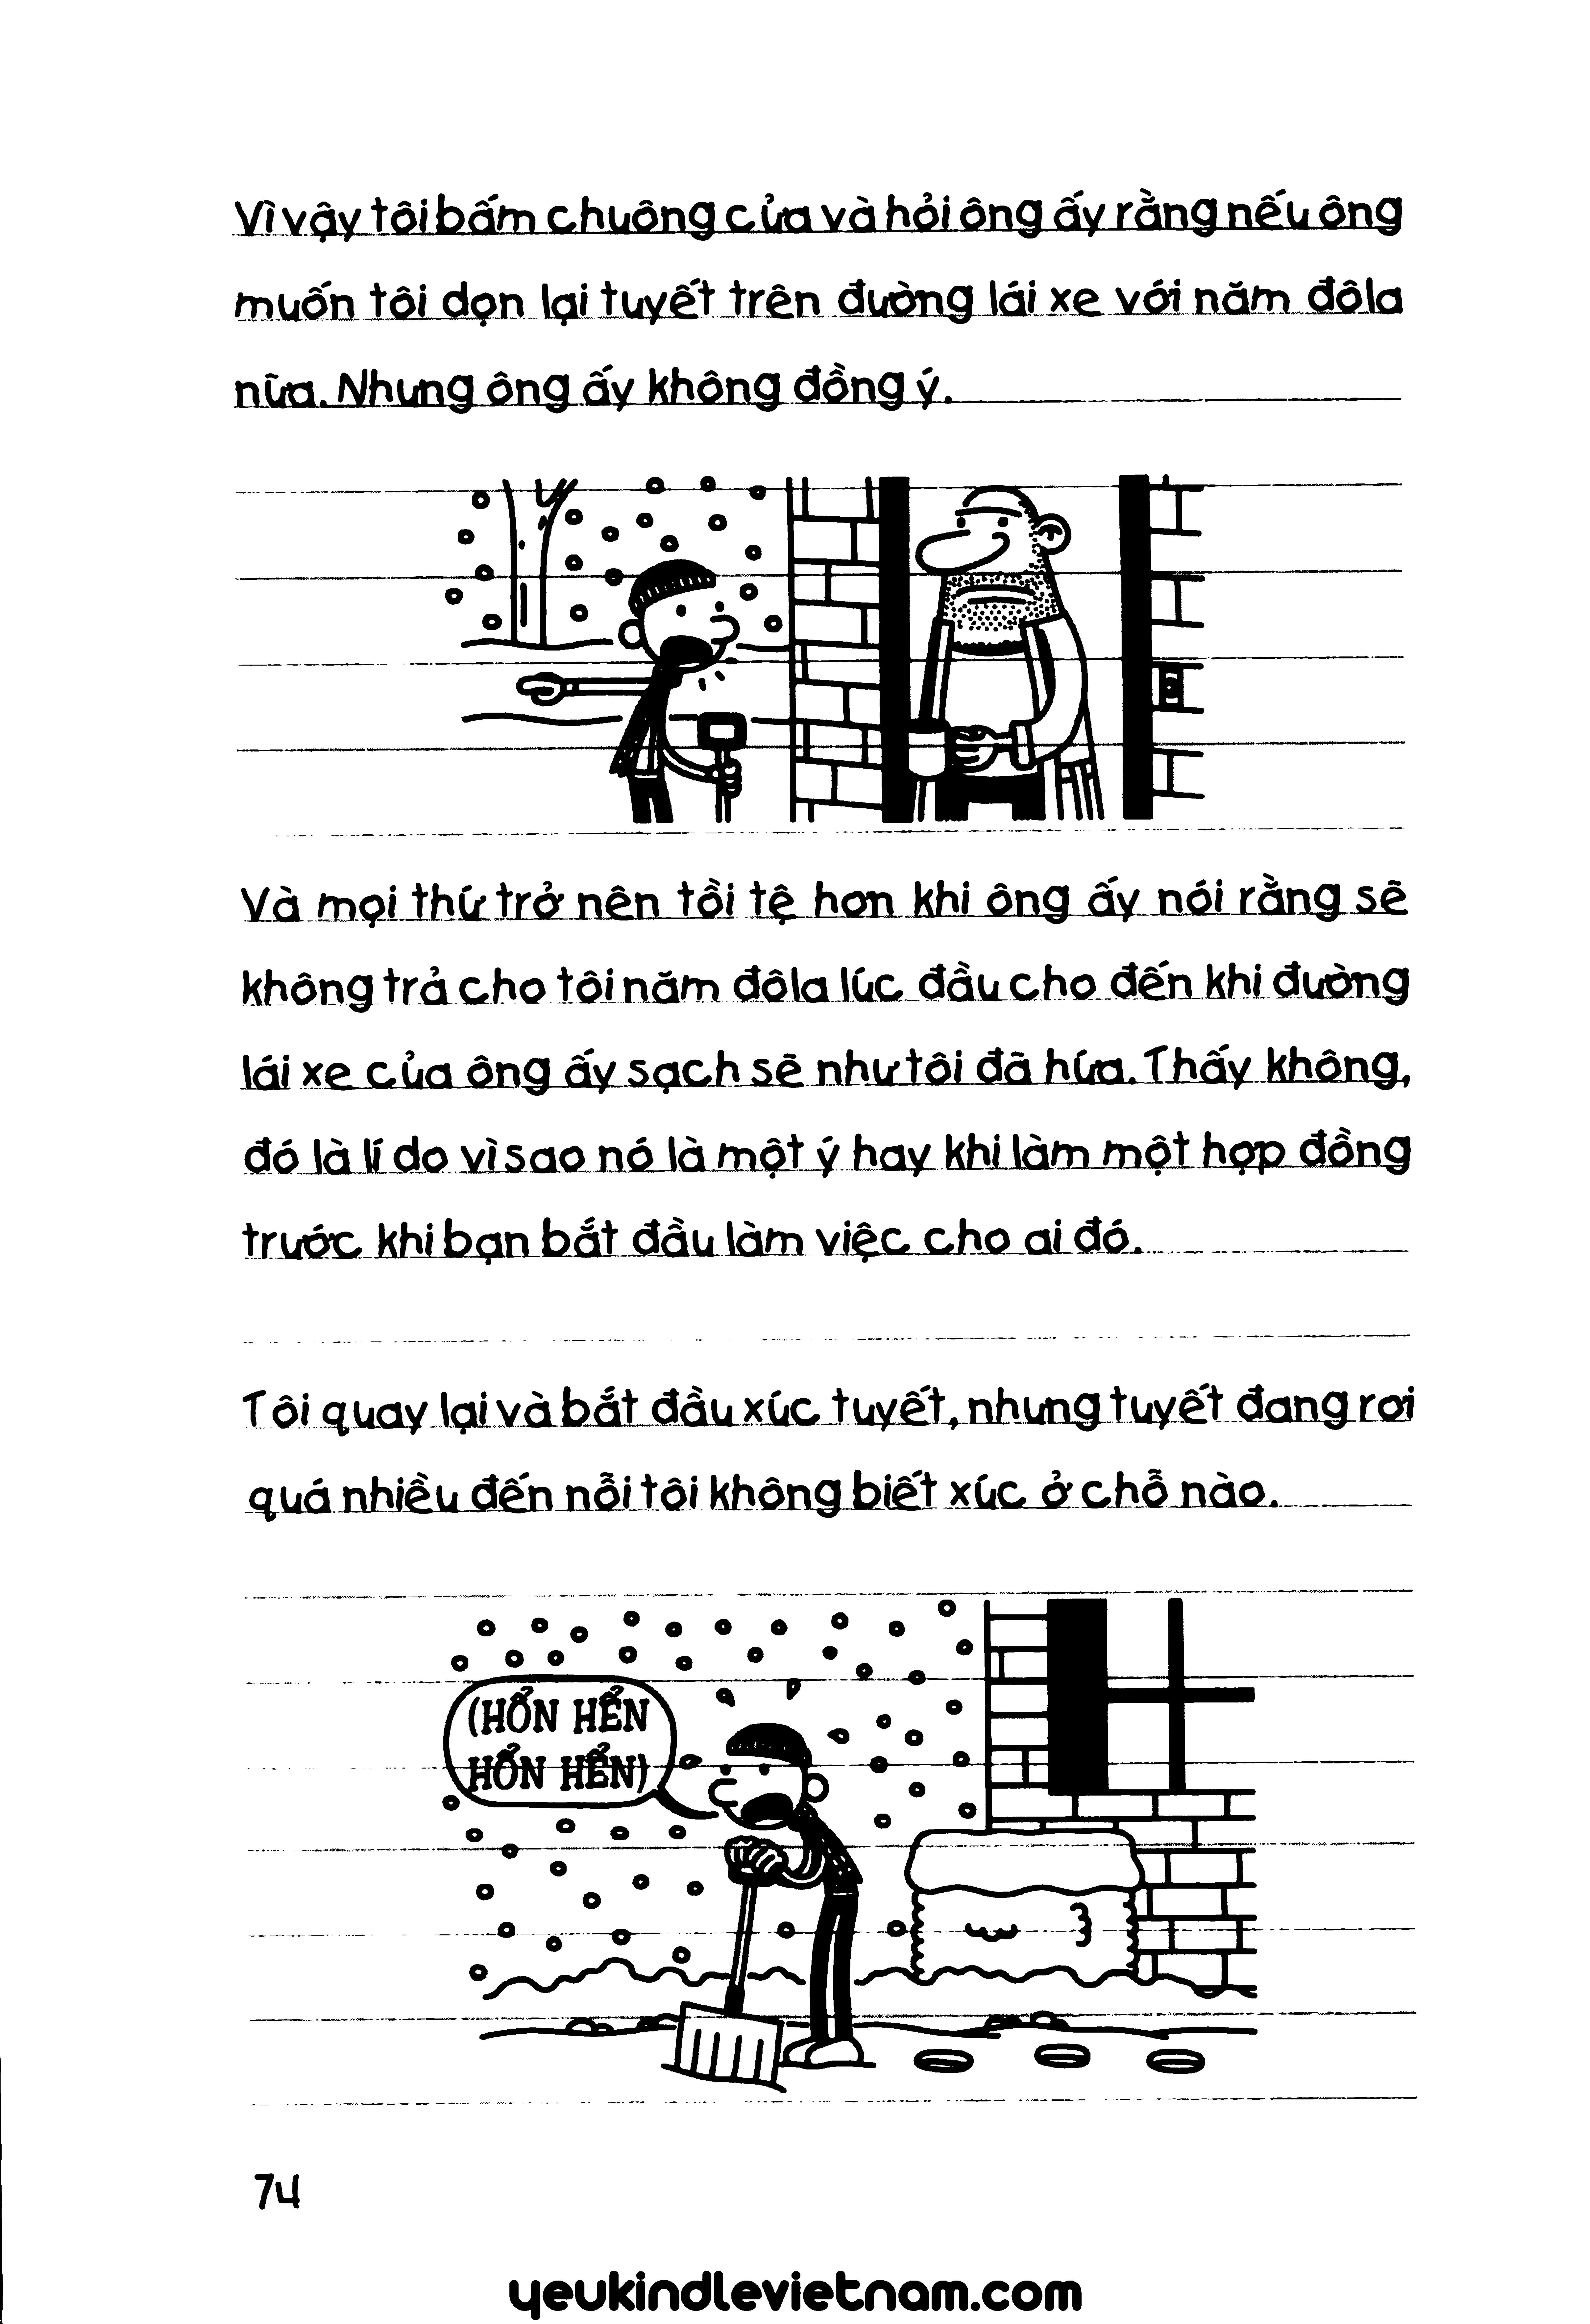 Vì vậy tôi bấm chuông cửa và hỏi ông ấy rằng nếu ông
muốn tôi dọn lại tuyết trên đường lái xe với năm đôla
nữa. Nhưng ông ấy không đồng ý.
Và mọi thứ trở nên tồi tệ hơn khi ông ấy nói rằng sẽ
không trả cho tôi năm đôla lúc đầu cho đến khi đường
lái xe của ông ấy sạch sẽ như tôi đã hứa. Thấy không,
đó là lí do vì sao nó là một ý hay khi làm một hợp đồng
trước khi bạn bắt đầu làm việc cho ai đó.
Tôi quay lại và bắt đầu xúc tuyết, nhưng tuyết đang rơi
quá nhiều đến nỗi tôi không biết xúc ở chỗ nào.
(HỔN HỂN
HỔN HỂN)
74
yeukindlevietnam.com